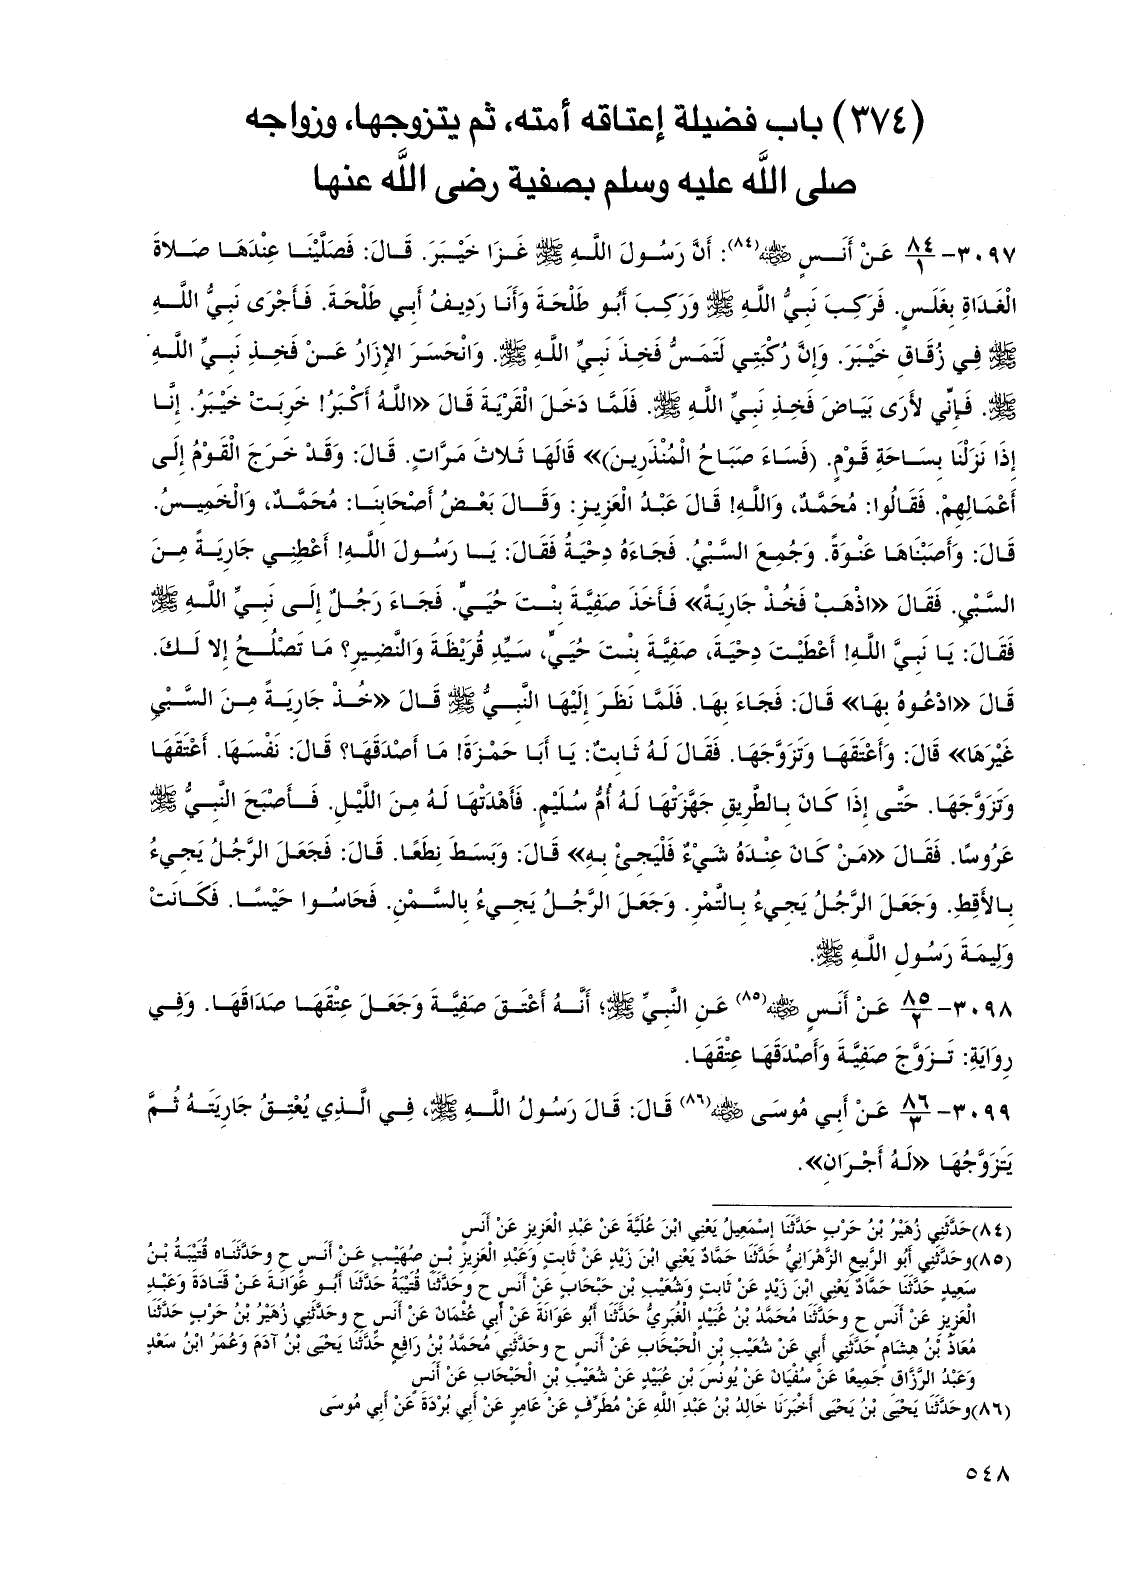 (٣٧٤) باب فضيلة إعتاقه أمته، ثم يتزوجها، وزواجه
صلى اللَّه عليه وسلم بصفية رضى اللَّه عنها
٣٠٩٧- ٨٤/١ عَنْ أَنَسٍ رضي الله عنه(٨٤): أَنَّ رَسُولَ اللَّهِ ﷺ غَزَا خَيْبَرَ. قَالَ: فَصَلَّيْنَا عِنْدَهَا صَلاةَ
الْغَدَاةِ بِغَلَسٍ. فَرَكِبَ نَبِيُّ اللَّهِ ﷺ وَرَكِبَ أَبُو طَلْحَةَ وَأَنَا رَدِيفُ أَبِي طَلْحَةَ. فَأَجْرَى نَبِيُّ اللَّهِ
ﷺ فِي زُقَاقِ خَيْبَرَ. وَإِنَّ رُكْبَتِي لَتَمَسُّ فَخِذَ نَبِيِّ اللَّهِ ﷺ. وَانْحَسَرَ الإِزَارُ عَنْ فَخِذِ نَبِيِّ اللَّهِ
ﷺ. فَإِنِّي لأَرَى بَيَاضَ فَخِذِ نَبِيِّ اللَّهِ ﷺ. فَلَمَّا دَخَلَ الْقَرْيَةَ قَالَ «اللَّهُ أَكْبَرُ! خَرِبَتْ خَيْبَرُ. إِنَّا
إِذَا نَزَلْنَا بِسَاحَةِ قَوْمٍ. (فَسَاءَ صَبَاحُ الْمُنْذَرِينَ)» قَالَهَا ثَلاثَ مَرَّاتٍ. قَالَ: وَقَدْ خَرَجَ الْقَوْمُ إِلَى
أَعْمَالِهِمْ. فَقَالُوا: مُحَمَّدٌ، وَاللَّهِ! قَالَ عَبْدُ الْعَزِيزِ: وَقَالَ بَعْضُ أَصْحَابِنَا: مُحَمَّدٌ، وَالْخَمِيسُ.
قَالَ: وَأَصَبْنَاهَا عَنْوَةً. وَجُمِعَ السَّبْيُ. فَجَاءَهُ دِحْيَةُ فَقَالَ: يَا رَسُولَ اللَّهِ! أَعْطِنِي جَارِيَةً مِنَ
السَّبْيِ. فَقَالَ «اذْهَبْ فَخُذْ جَارِيَةً» فَأَخَذَ صَفِيَّةَ بِنْتَ حُيَيٍّ. فَجَاءَ رَجُلٌ إِلَى نَبِيِّ اللَّهِ ﷺ
فَقَالَ: يَا نَبِيَّ اللَّهِ! أَعْطَيْتَ دِحْيَةَ، صَفِيَّةَ بِنْتَ حُيَيٍّ، سَيِّدِ قُرَيْظَةَ وَالنَّضِيرِ؟ مَا تَصْلُحُ إِلا لَكَ.
قَالَ «ادْعُوهُ بِهَا» قَالَ: فَجَاءَ بِهَا. فَلَمَّا نَظَرَ إِلَيْهَا النَّبِيُّ ﷺ قَالَ «خُذْ جَارِيَةً مِنَ السَّبْيِ
غَيْرَهَا» قَالَ: وَأَعْتَقَهَا وَتَزَوَّجَهَا. فَقَالَ لَهُ ثَابِتٌ: يَا أَبَا حَمْزَةَ! مَا أَصْدَقَهَا؟ قَالَ: نَفْسَهَا. أَعْتَقَهَا
وَتَزَوَّجَهَا. حَتَّى إِذَا كَانَ بِالطَّرِيقِ جَهَّزَتْهَا لَهُ أُمُّ سُلَيْمٍ. فَأَهْدَتْهَا لَهُ مِنَ اللَّيْلِ. فَأَصْبَحَ النَّبِيُّ ﷺ
عَرُوسًا. فَقَالَ «مَنْ كَانَ عِنْدَهُ شَيْءٌ فَلْيَجِئْ بِهِ» قَالَ: وَبَسَطَ نِطَعًا. قَالَ: فَجَعَلَ الرَّجُلُ يَجِيءُ
بِالأَقِطِ. وَجَعَلَ الرَّجُلُ يَجِيءُ بِالتَّمْرِ. وَجَعَلَ الرَّجُلُ يَجِيءُ بِالسَّمْنِ. فَحَاسُوا حَيْسًا. فَكَانَتْ
وَلِيمَةَ رَسُولِ اللَّهِ ﷺ.
٣٠٩٨- ٨٥/٢ عَنْ أَنَسٍ رضي الله عنه(٨٥) عَنِ النَّبِيِّ ﷺ؛ أَنَّهُ أَعْتَقَ صَفِيَّةَ وَجَعَلَ عِتْقَهَا صَدَاقَهَا. وَفِي
رِوَايَةِ: تَزَوَّجَ صَفِيَّةَ وَأَصْدَقَهَا عِتْقَهَا.
٣٠٩٩- ٨٦/٣ عَنْ أَبِي مُوسَى رضي الله عنه(٨٦) قَالَ: قَالَ رَسُولُ اللَّهِ ﷺ، فِي الَّذِي يُعْتِقُ جَارِيَتَهُ ثُمَّ
يَتَزَوَّجُهَا «لَهُ أَجْرَانِ».
(٨٤)حَدَّثَنِي زُهَيْرُ بْنُ حَرْبٍ حَدَّثَنَا إِسْمَعِيلُ يَعْنِي ابْنَ عُلَيَّةَ عَنْ عَبْدِ الْعَزِيزِ عَنْ أَنَسٍ
(٨٥)وحَدَّثَنِي أَبُو الرَّبِيعِ الزَّهْرَانِيُّ حَدَّثَنَا حَمَّادٌ يَعْنِي ابْنَ زَيْدٍ عَنْ ثَابِتٍ وَعَبْدِ الْعَزِيزِ بْنِ صُهَيْبٍ عَنْ أَنَسٍ ح وحَدَّثَنَاه قُتَيْبَةُ بْنُ
سَعِيدٍ حَدَّثَنَا حَمَّادٌ يَعْنِي ابْنَ زَيْدٍ عَنْ ثَابِتٍ وَشُعَيْبِ بْنِ حَبْحَابٍ عَنْ أَنَسٍ ح وحَدَّثَنَا قُتَيْبَةُ حَدَّثَنَا أَبُو عَوَانَةَ عَنْ قَتَادَةَ وَعَبْدِ
الْعَزِيزِ عَنْ أَنَسٍ ح وحَدَّثَنَا مُحَمَّدُ بْنُ عُبَيْدٍ الْغُبَرِيُّ حَدَّثَنَا أَبُو عَوَانَةَ عَنْ أَبِي عُثْمَانَ عَنْ أَنَسٍ ح وحَدَّثَنِي زُهَيْرُ بْنُ حَرْبٍ حَدَّثَنَا
مُعَاذُ بْنُ هِشَامٍ حَدَّثَنِي أَبِي عَنْ شُعَيْبِ بْنِ الْحَبْحَابِ عَنْ أَنَسٍ ح وحَدَّثَنِي مُحَمَّدُ بْنُ رَافِعٍ حَدَّثَنَا يَحْيَى بْنُ آدَمَ وَعُمَرُ ابْنُ سَعْدٍ
وَعَبْدُ الرَّزَّاقِ جَمِيعًا عَنْ سُفْيَانَ عَنْ يُونُسَ بْنِ عُبَيْدٍ عَنْ شُعَيْبِ بْنِ الْحَبْحَابِ عَنْ أَنَسٍ
(٨٦)وحَدَّثَنَا يَحْيَى بْنُ يَحْيَى أَخْبَرَنَا خَالِدُ بْنُ عَبْدِ اللَّهِ عَنْ مُطَرِّفٍ عَنْ عَامِرٍ عَنْ أَبِي بُرْدَةَ عَنْ أَبِي مُوسَى
٥٤٨